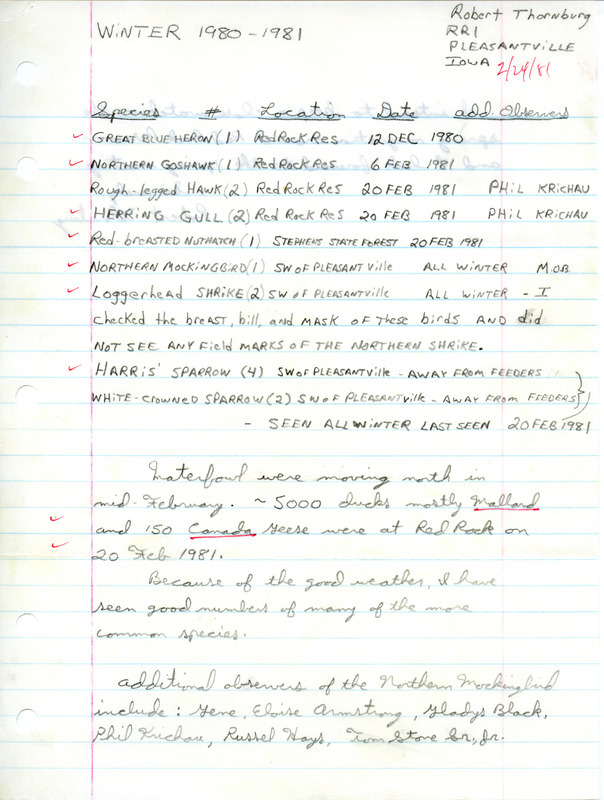 Robert Thornburg
WINTER 1980-1981
RR1
PLEASANTVILLE
IOWA 2/24/81
Species # Location Date add. Observers
GREAT BLUE HERON (1) Red Rock Res 12 DEC 1980
NORTHERN GOSHAWK (1) Red Rock Res 6 FEB 1981
Rough-legged HAWK (2) Red Rock Res 20 FEB 1981 PHIL KRICHAU
HERRING GULL (2) Red Rock Res 20 FEB 1981 PHIL KRICHAU
Red-breasted NUTHATCH (1) STEPHENS STATE FOREST 20 FEB 1981
NORTHERN MOCKINGBIRD (1) SW OF PLEASANTVILLE ALL WINTER M.OB.
Loggerhead SHRIKE (2) SW OF PLEASANTVILLE ALL WINTER - I
checked the breast, bill, and MASK OF These birds AND did
NOT SEE ANY Field MARKS OF THE NORTHERN SHRIKE.
HARRIS' SPARROW (4) SW OF PLEASANTVILLE - AWAY FROM FEEDERS
WHITE-crowned SPARROW (2) SW OF PLEASANTVILLE - AWAY FROM FEEDERS
- SEEN ALL WINTER LAST SEEN 20 FEB 1981
Waterfowl were moving north in
mid-February. ~5000 ducks mostly Mallard
and 150 Canada Geese were at Red Rock on
20 Feb 1981.
Because of the good weather, I have
seen good numbers of many of the more
common species.
additional observers of the Northern Mockingbird
include: Gene, Eloise Armstrong, Gladys Black,
Phil Krichau, Russel Hays, Tom Stone Sr., Jr.